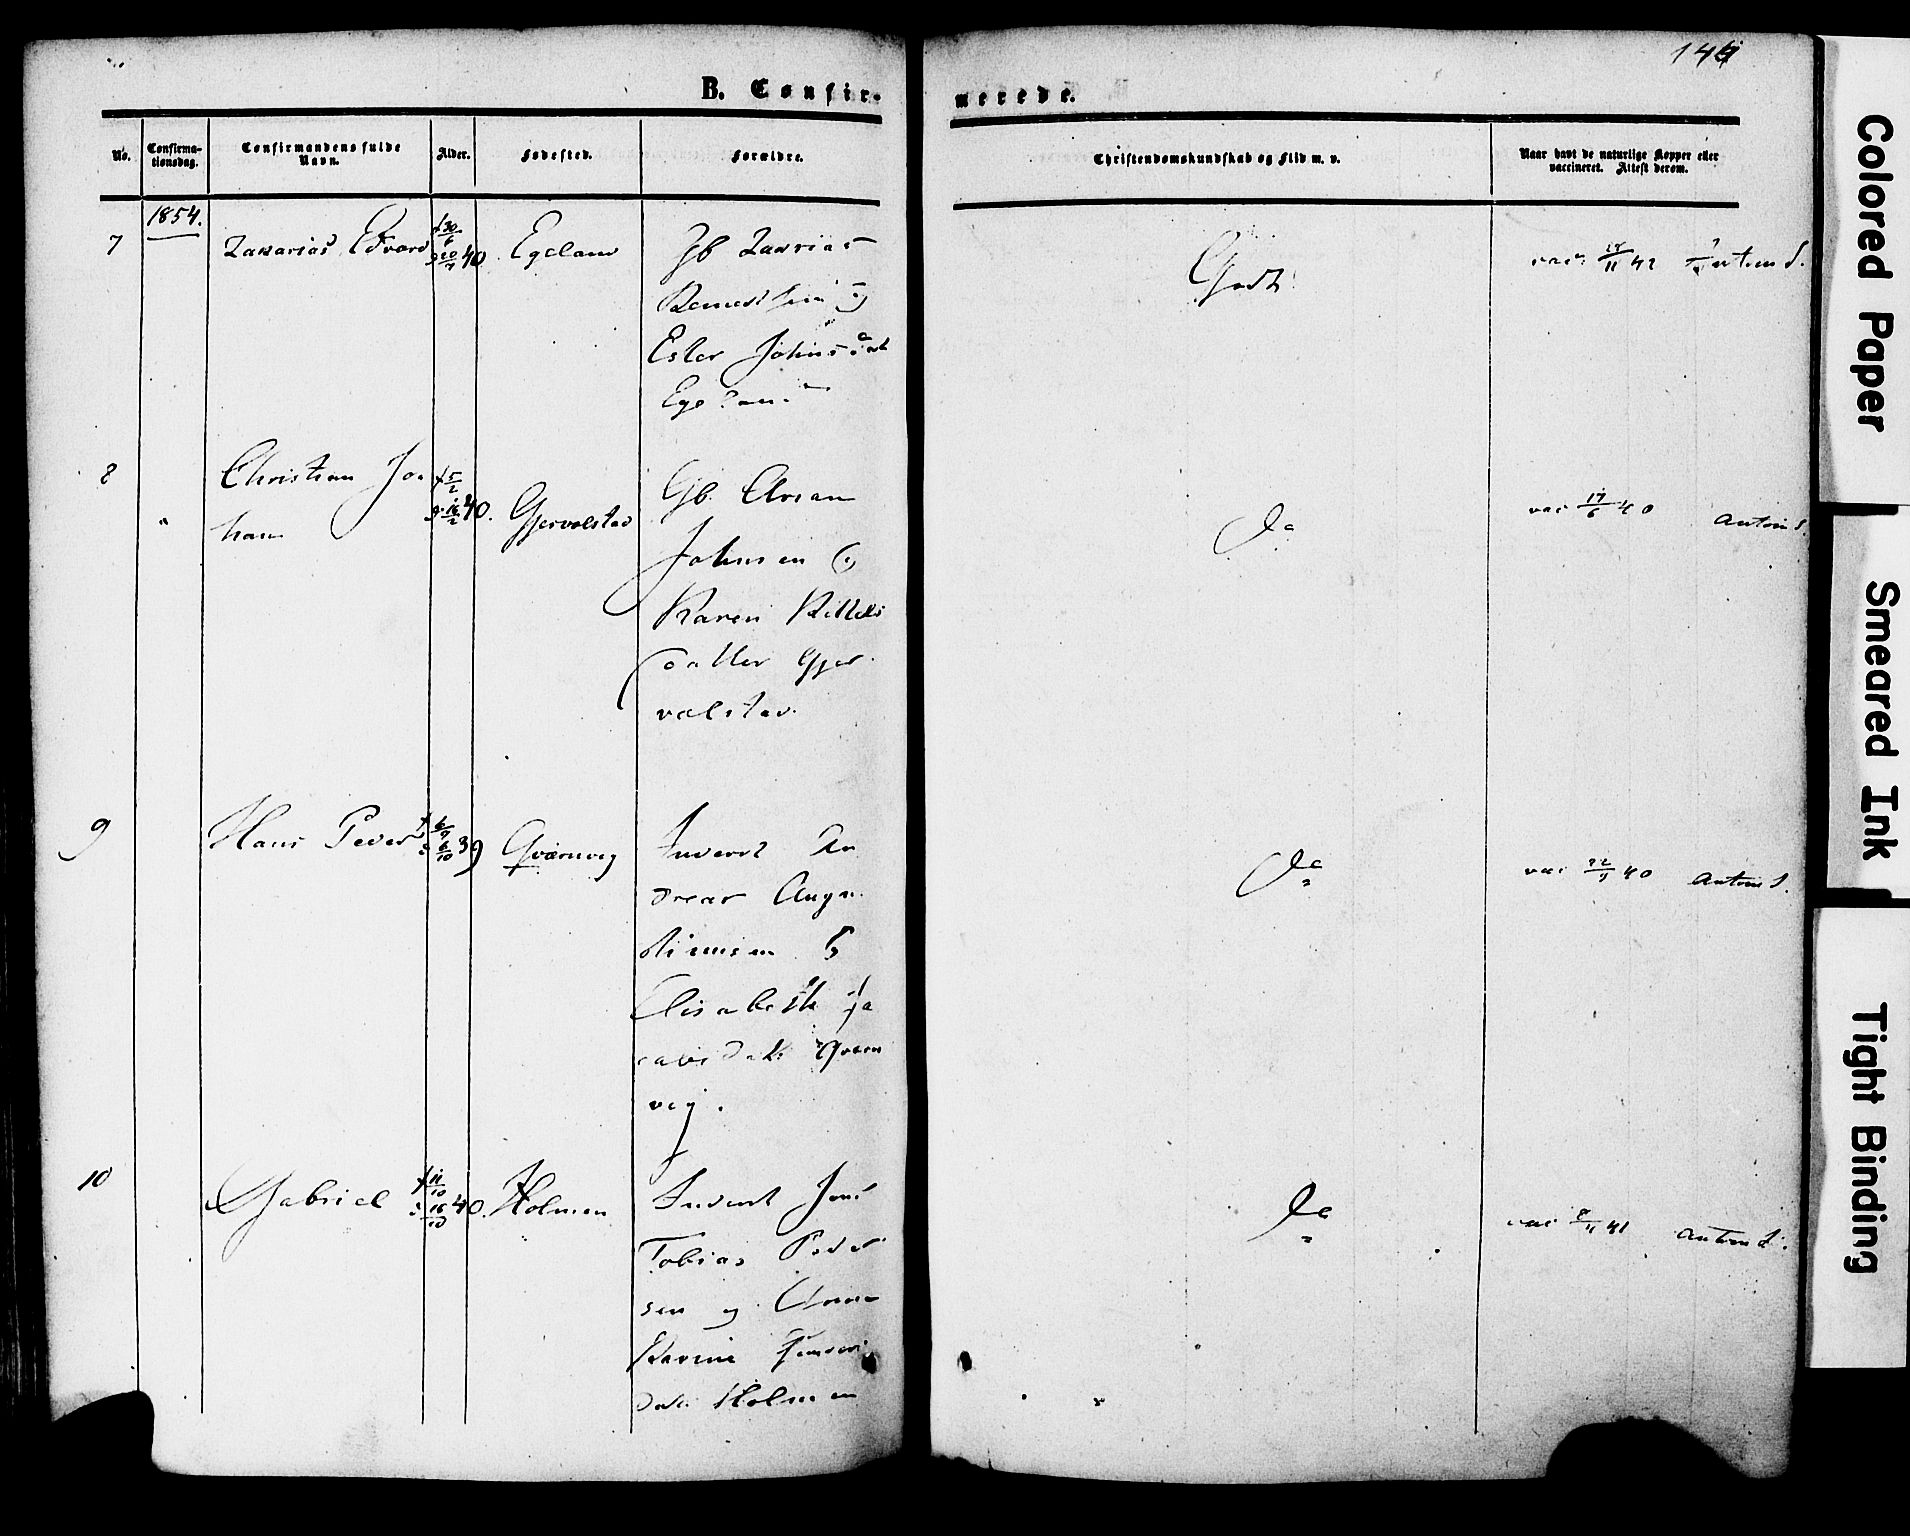 146
B. Confir-
merede.
No.
Confirma-
tionsdag.
Confirmandens fulde
Navn.
Alder.
Fødested.
Forældre.
Christendomskundskab og Flid m. v.
Naar havt de naturlige Kopper eller
vaccineret. Attest derom.
1854.
7
Zakarias Edvard
f 30/6
d 20/7 40
Egeland
Gb Zakrias
og
Ester Johnsdat
Egeland
Godt
vac 42
8
"
Christian Jo
han
f 5/2
d 16/2 40.
Gjervolstad
Gb.
Johnsen og
Karen Kittels
datter Gjer
volstad.
do
vac 17/6 40 Anton S.
9
Hans Peder
f 6/9
d 6/10 39
Qværnvig
Inderst An
dreas Augu
stinusen og
Elisabeth Ja
cobsdat. Qværn
vig.
do
vac 22/9 40 Anton S.
10
Gabriel
f 11/10
d 18/10 40.
Holmen
Inderst Jens
Tobias Peder
sen og Anne
Karine
dat. Holmen
do
vac 41 Anton S.
Colored Paper
Smeared Ink
Tight Binding